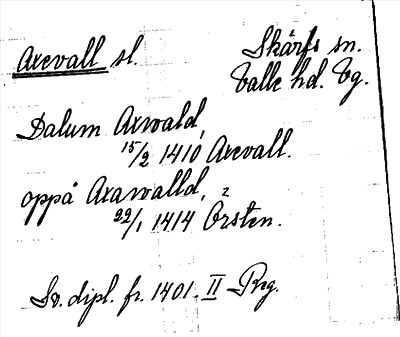 Axevall sl. Skärfs sn.
Valle hd. Vg.
Dalum Axwald,
15/2 1410 Axevall.
oppå Axawalld,
22/1 1414 Örsten.
Sv. dipl. fr. 1401. II Prg.